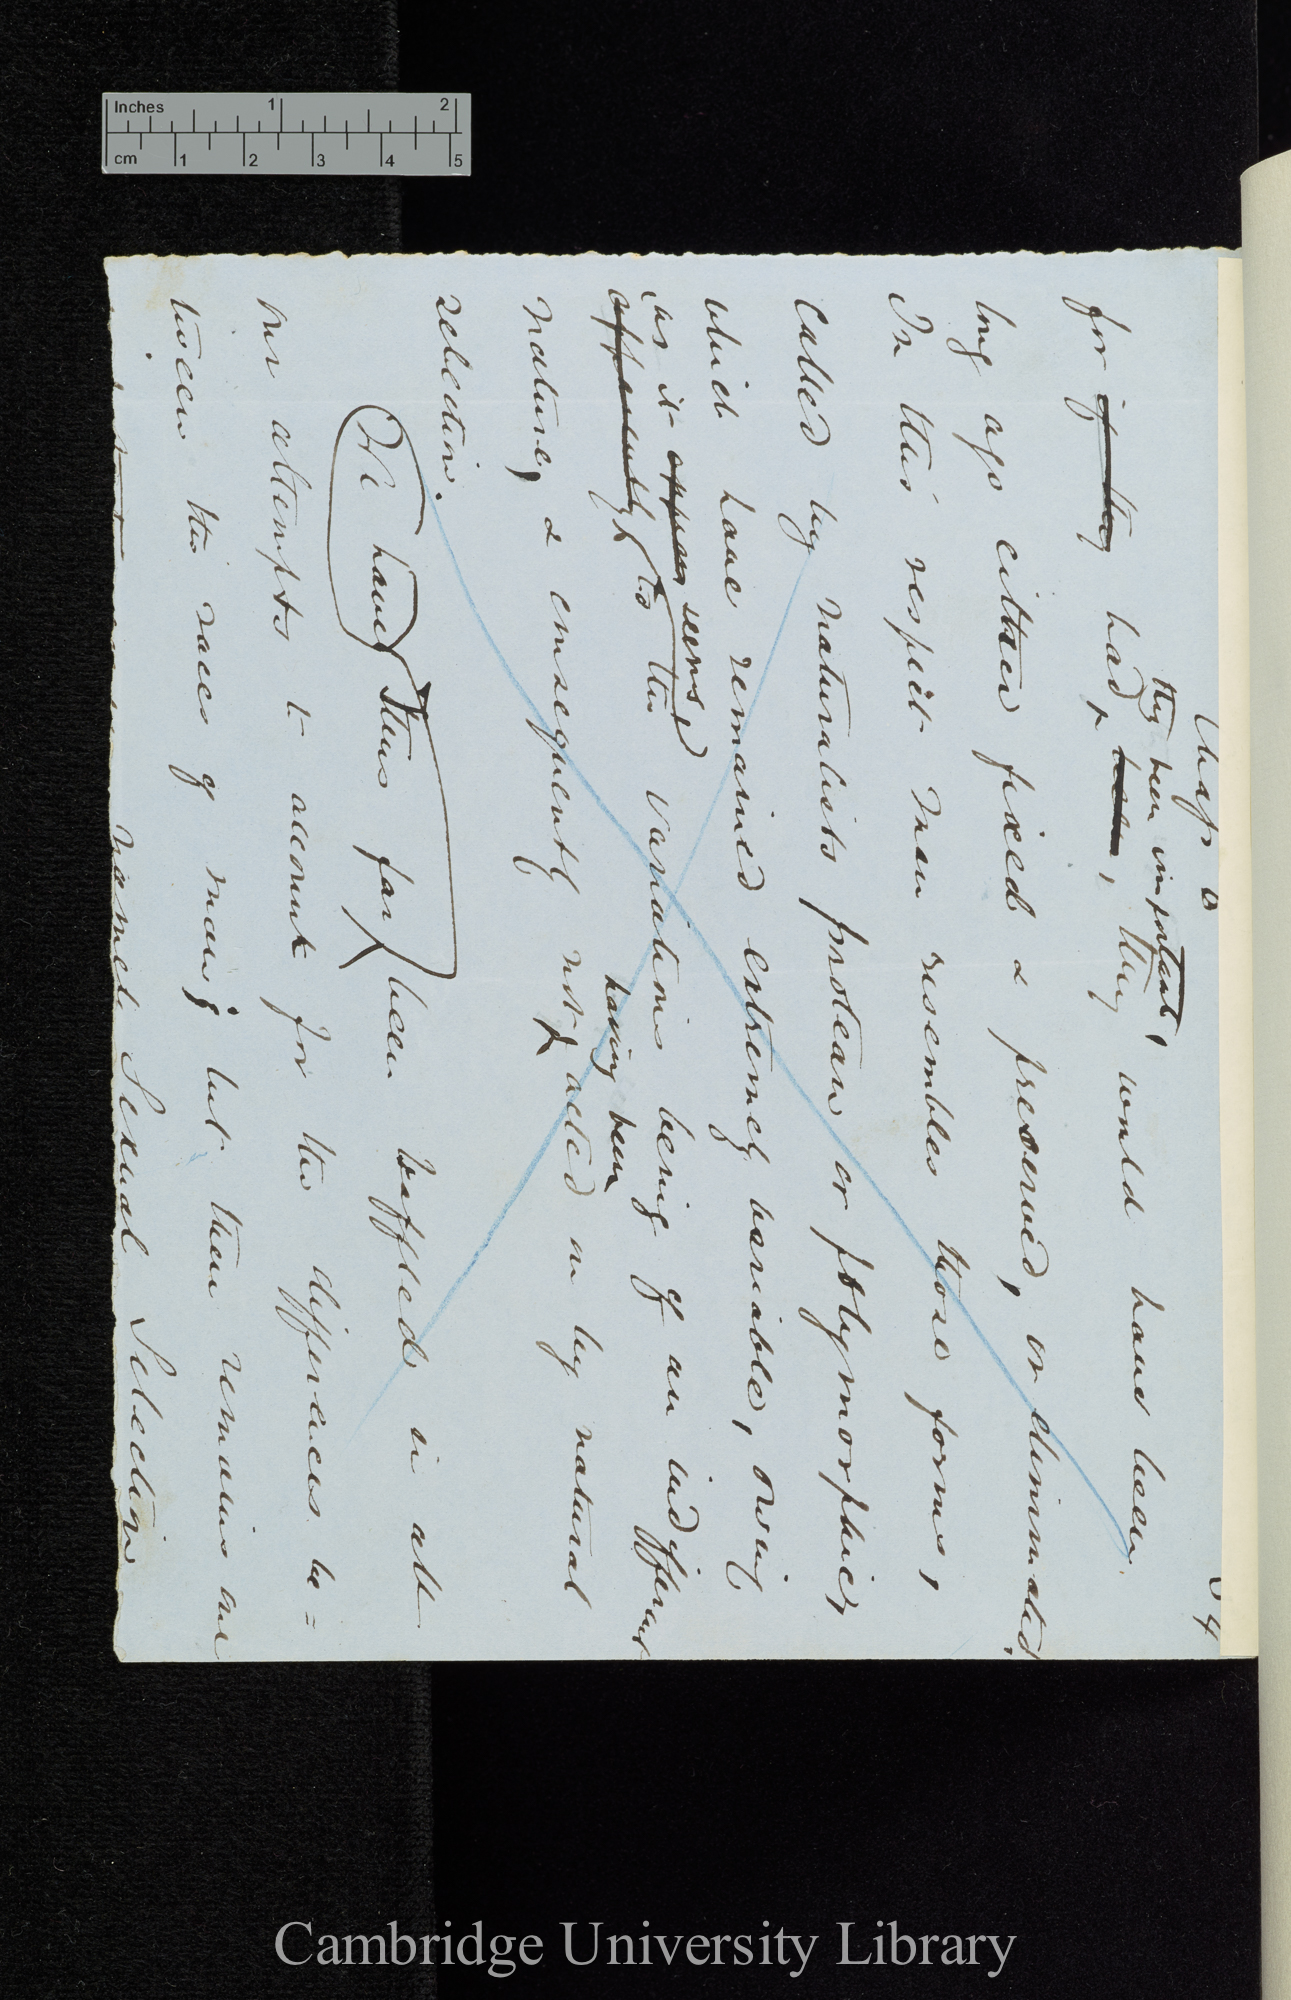 Inches 1 2
cm 1 2 3 4 5
Chap 4
they been important,
for if they had been, they would have been
long ago either fixed & preserved, or eliminated.
In this respect man resembles those forms,
called by naturalists protean or polymorphic,
which have remained extremely variable, owing
as it appears seems,
apparently to the variations being of an indifferent
having been
nature, & consequently not acted on by natural
selection.
We have thus far been baffled in all
our attempts to account for the differences be=
tween the races of man; but there remains one
named Sexual Selection
Cambridge University Library